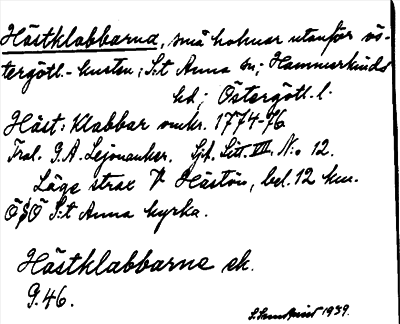 Hästklabbarna, små holmar utanför ös-
tergötl.-kusten; S:t Anna sn; Hammarkinds
hd; Östergötl. l.
Häst: Klabbar omkr. 1774-76
Fral. G.A. Lejonanker. Sjk. Litt. VII. N:o 12.
Läge strax V Hästön, bel. 12 km.
ÖSÖ S:t Anna kyrka.
Hästklabbarne ek.
G.46.
1939.